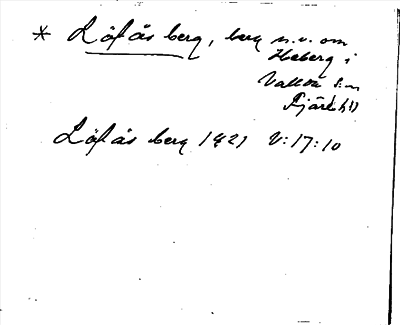 * Löfås berg, berg n.v. om
Heberg i
Valda s:n
Fjäre hd
Löfås berg 1821 V:17:10